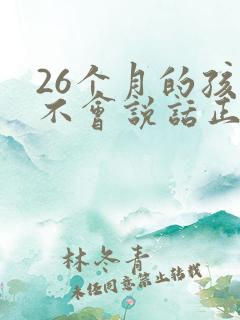 26个月的孩
不會說話正
林冬青
未经同意禁止转载